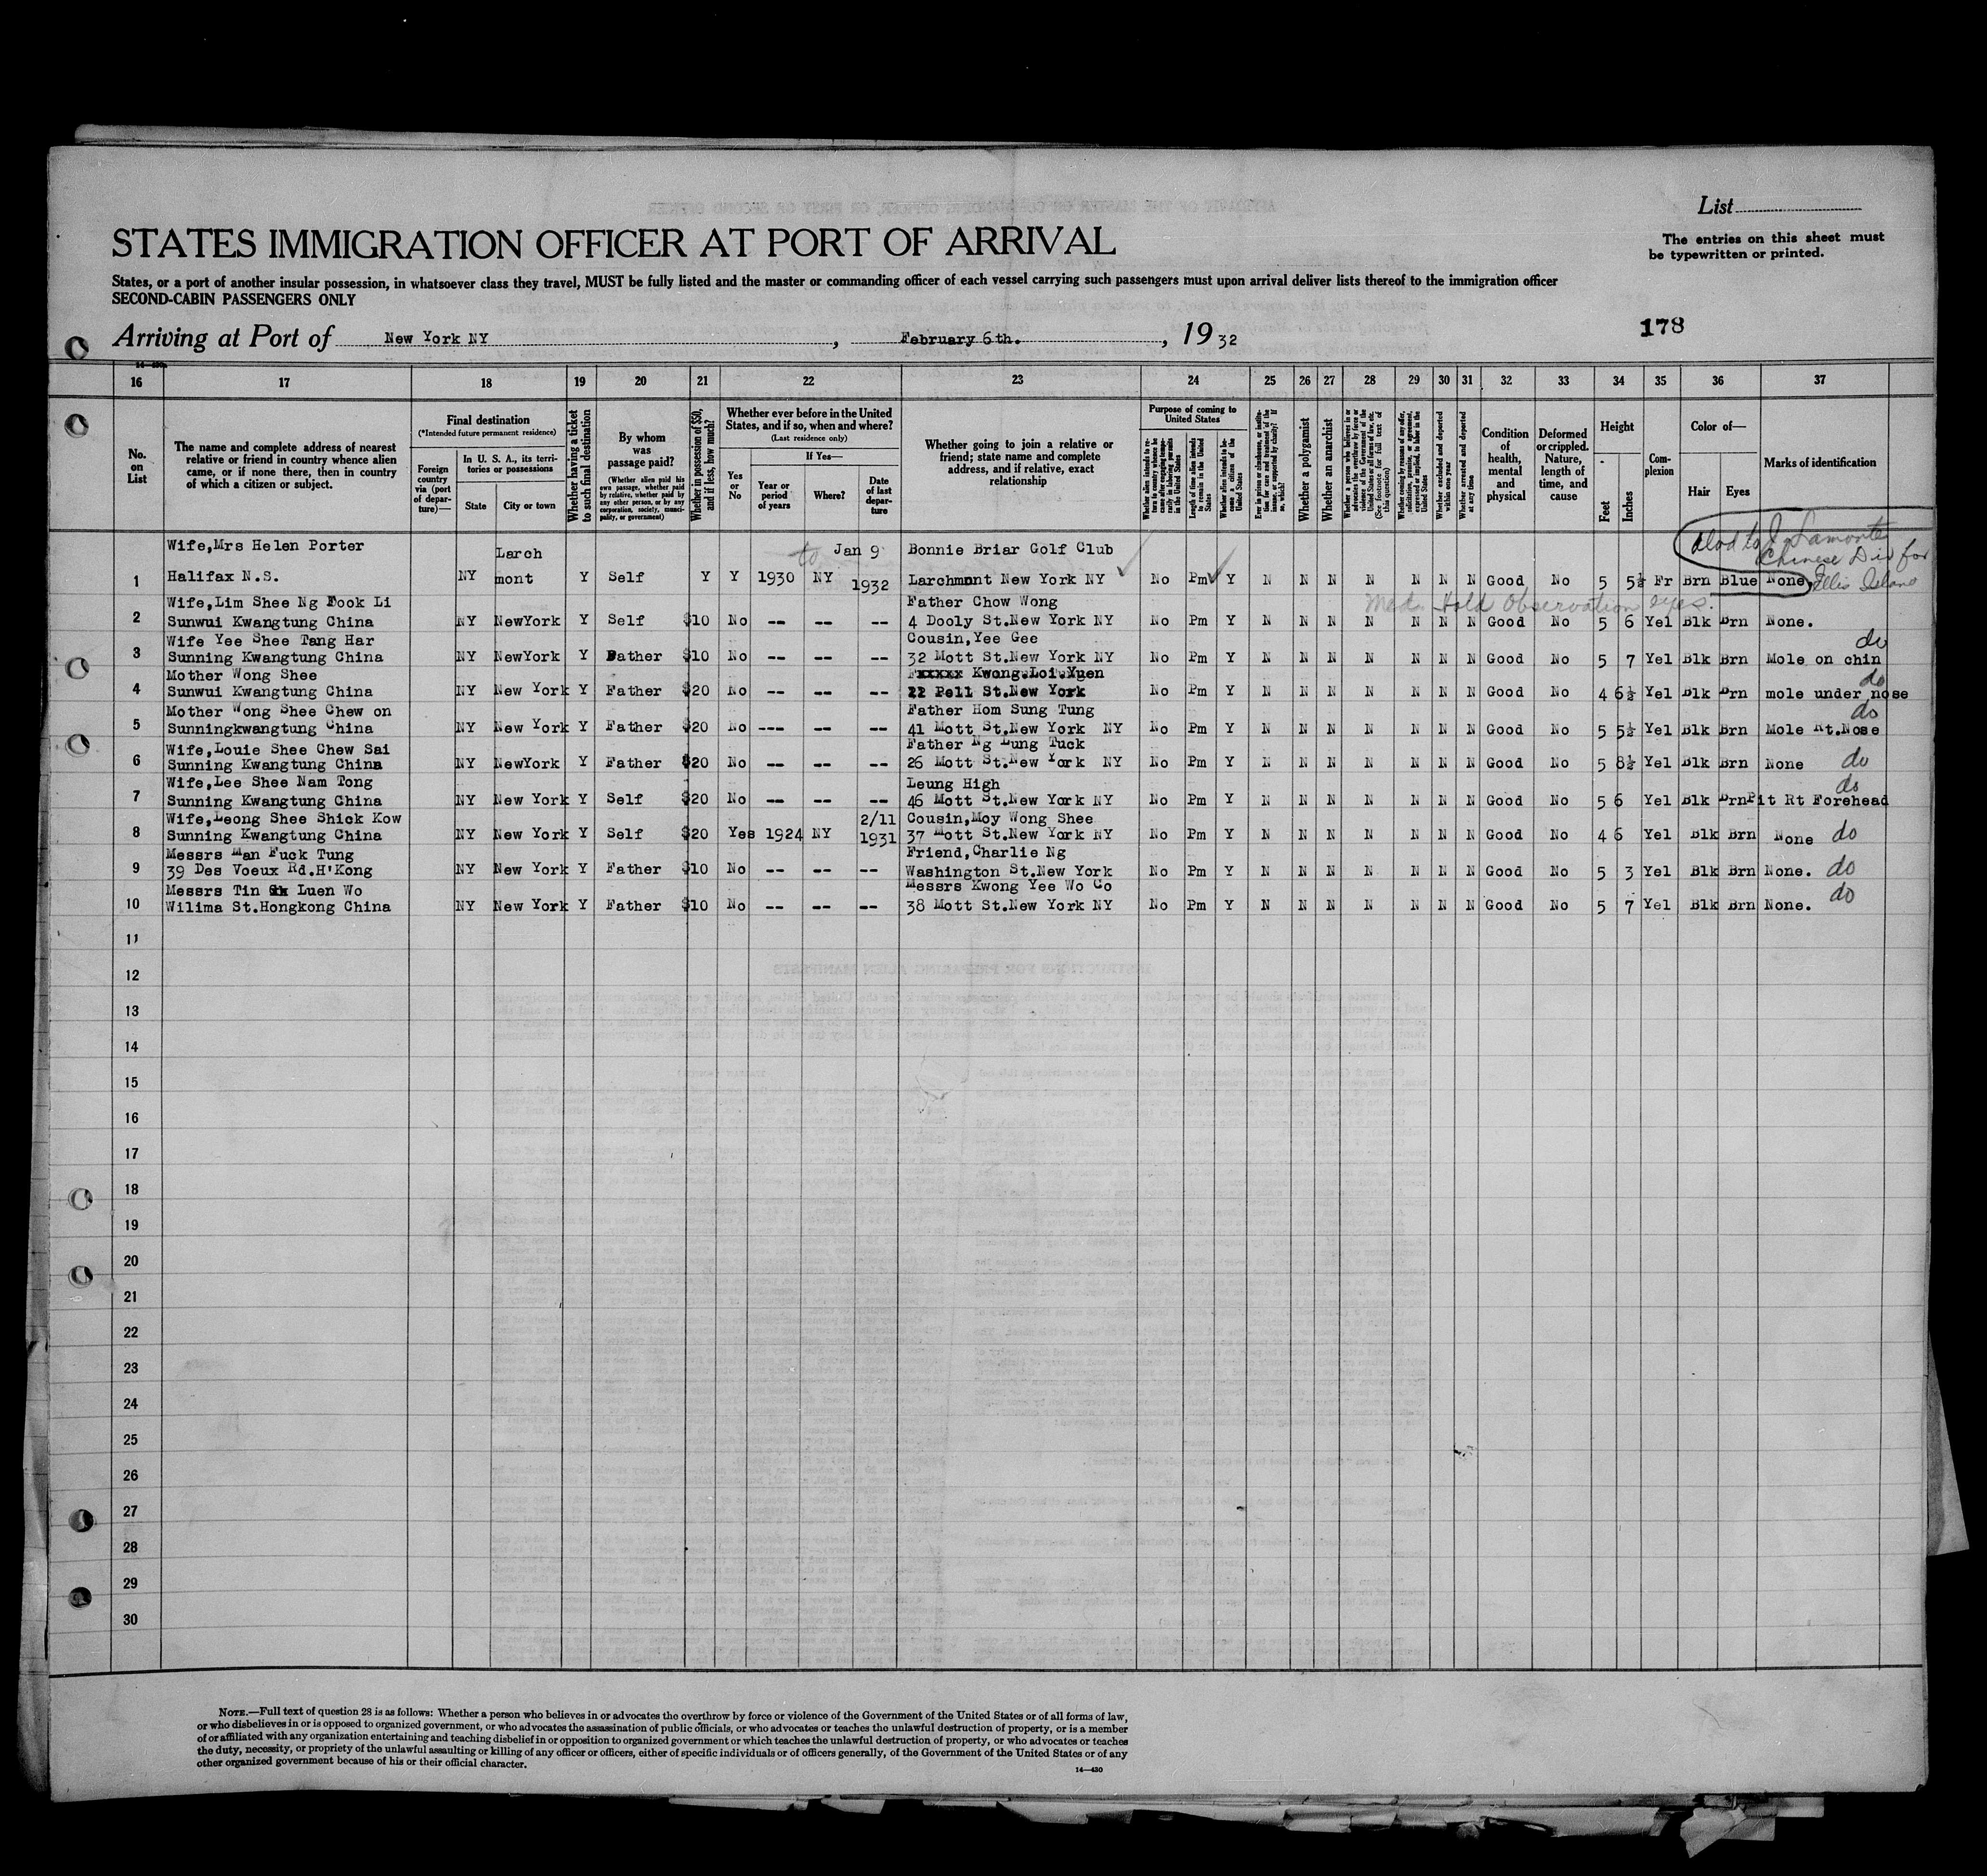 List
The entries on this sheet must
be typewritten or printed.
STATES IMMIGRATION OFFICER AT PORT OF ARRIVAL
States, or a port of another insular possession, in whatsoever class they travel, MUST be fully listed and the master or commanding officer of each vessel carrying such passengers must upon arrival deliver lists thereof to the immigration officer
SECOND-CABIN PASSENGERS ONLY
Arriving at Port of New York NY, February 6th., 1932
178
16 17 18 19 20 21 22 23 24 25 26 27 28 29 30 31 32 33 34 35 36 37
No. on List
The name and complete address of nearest relative or friend in country whence alien came, or if none there, then in country of which a citizen or subject.
Final destination
(*Intended future permanent residence)
Foreign country via (port of departure)—
In U. S. A., its territories or possessions
State
City or town
Whether having a ticket to such final destination
By whom was passage paid?
(Whether alien paid his own passage, whether paid by relative, whether paid by any other person, or by any corporation, society, municipality, or government)
Whether in possession of $50, and if less, how much?
Whether ever before in the United States, and if so, when and where?
(Last residence only)
Yes or No
If Yes—
Year or period of years
Where?
Date of last departure
Whether going to join a relative or friend; state name and complete address, and if relative, exact relationship
Purpose of coming to United States
Length of time alien intends to remain in the United States
Whether alien intends to become a citizen of the United States
Whether a polygamist
Whether an anarchist
Whether excluded and deported within one year
Whether arrested and deported at any time
Condition of health, mental and physical
Deformed or crippled. Nature, length of time, and cause
Height
Feet
Inches
Complexion
Color of—
Hair
Eyes
Marks of identification
Wife,Mrs Helen Porter Larch to Jan 9 Bonnie Briar Golf Club
1 Halifax N.S. NY mont Y Self Y Y 1930 NY 1932 Larchmont New York NY No Pm Y N N N N N N N Good No 5 5½ Fr Brn Blue None
Chinese Div for
Ellis Island
Med. Hold Observation eyes.
Wife,Lim Shee Ng Fook Li Father Chow Wong
2 Sunwui Kwangtung China NY NewYork Y Self $10 No -- -- -- 4 Dooly St.New York NY No Pm Y N N N N N N N Good No 5 6 Yel Blk Brn None.
Wife Yee Shee Tang Har Cousin,Yee Gee do
3 Sunning Kwangtung China NY NewYork Y Father $10 No -- -- -- 32 Mott St.New York NY No Pm Y N N N N N N N Good No 5 7 Yel Blk Brn Mole on chin
Mother Wong Shee Kwong Loi Yuen do
4 Sunwui Kwangtung China NY New York Y Father $20 No -- -- -- 22 Pell St.New York No Pm Y N N N N N N N Good No 4 6½ Yel Blk Brn mole under nose
Mother Wong Shee Chew on Father Hom Sung Tung do
5 Sunningkwangtung China NY New York Y Father $20 No --- -- -- 41 Mott St.New York NY No Pm Y N N N N N N N Good No 5 5½ Yel Blk Brn Mole Rt.Nose
Wife,Louie Shee Chew Sai Father Ng Lung Tuck
6 Sunning Kwangtung China NY NewYork Y Father $20 No -- -- -- 26 Mott St.New York NY No Pm Y N N N N N N N Good No 5 8½ Yel Blk Brn None do
Wife,Lee Shee Nam Tong Leung High do
7 Sunning Kwangtung China NY New York Y Self $20 No -- -- -- 46 Mott St.New York NY No Pm Y N N N N N N N Good No 5 6 Yel Blk Brn Pit Rt Forehead
Wife,Leong Shee Shick Kow 2/11 Cousin,Moy Wong Shee
8 Sunning Kwangtung China NY New York Y Self $20 Yes 1924 NY 1931 37 Mott St.New York NY No Pm Y N N N N N N N Good No 4 6 Yel Blk Brn None do
Messrs Man Fuck Tung Friend,Charlie Ng
9 39 Des Voeux Rd.H'Kong NY New York Y Father $10 No -- -- -- Washington St.New York No Pm Y N N N N N N N Good No 5 3 Yel Blk Brn None. do
Messrs Tin Luen Wo Messrs Kwong Yee Wo Co
10 Wilima St.Hongkong China NY New York Y Father $10 No -- -- -- 38 Mott St.New York NY No Pm Y N N N N N N N Good No 5 7 Yel Blk Brn None. do
11
12
13
14
15
16
17
18
19
20
21
22
23
24
25
26
27
28
29
30
NOTE.—Full text of question 28 is as follows: Whether a person who believes in or advocates the overthrow by force or violence of the Government of the United States or of all forms of law,
or who disbelieves in or is opposed to organized government, or who advocates the assassination of public officials, or who advocates or teaches the unlawful destruction of property, or is a member
of or affiliated with any organization entertaining and teaching disbelief in or opposition to organized government or which teaches the unlawful destruction of property, or who advocates or teaches
the duty, necessity, or propriety of the unlawful assaulting or killing of any officer or officers, either of specific individuals or of officers generally, of the Government of the United States or of any
other organized government because of his or their official character.
14—430